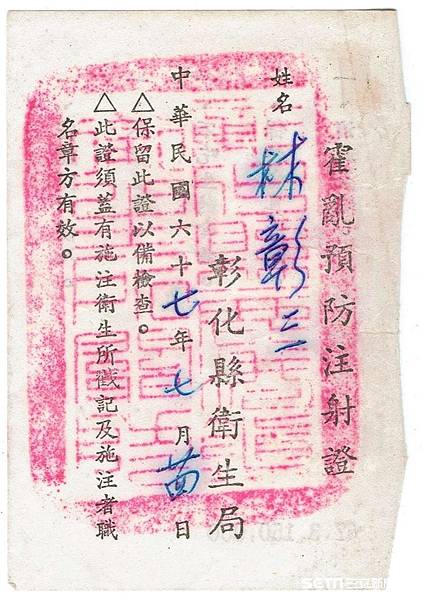 霍亂預防注射證
姓名 林彰三
彰化縣衛生局
中華民國六十七年七月廿四日
△保留此證以備檢查。
△此證須蓋有施注衛生所戳記及施注者職
名章方有效。
SETN